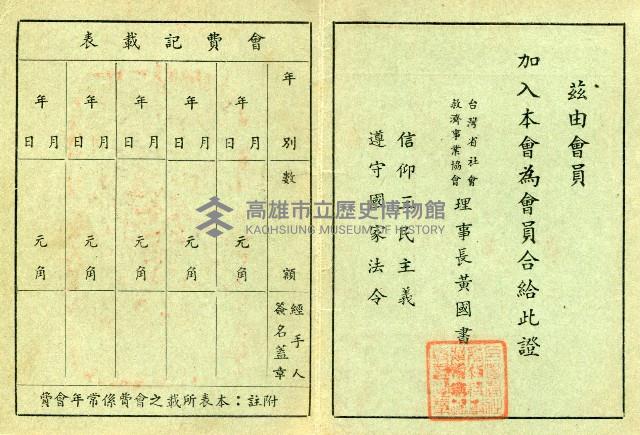 茲由會員
加入本會為會員合給此證
台灣省社會
救濟事業協會
理事長黃國書
信仰三民主義
遵守國家法令
會費記載表
年別
數額
經手人
簽名蓋章
年
月
日
元
角
年
月
日
元
角
年
月
日
元
角
年
月
日
元
角
年
月
日
元
角
附註：本表所載之會費係常年會費
高雄市立歷史博物館
KAOHSIUNG MUSEUM OF HISTORY